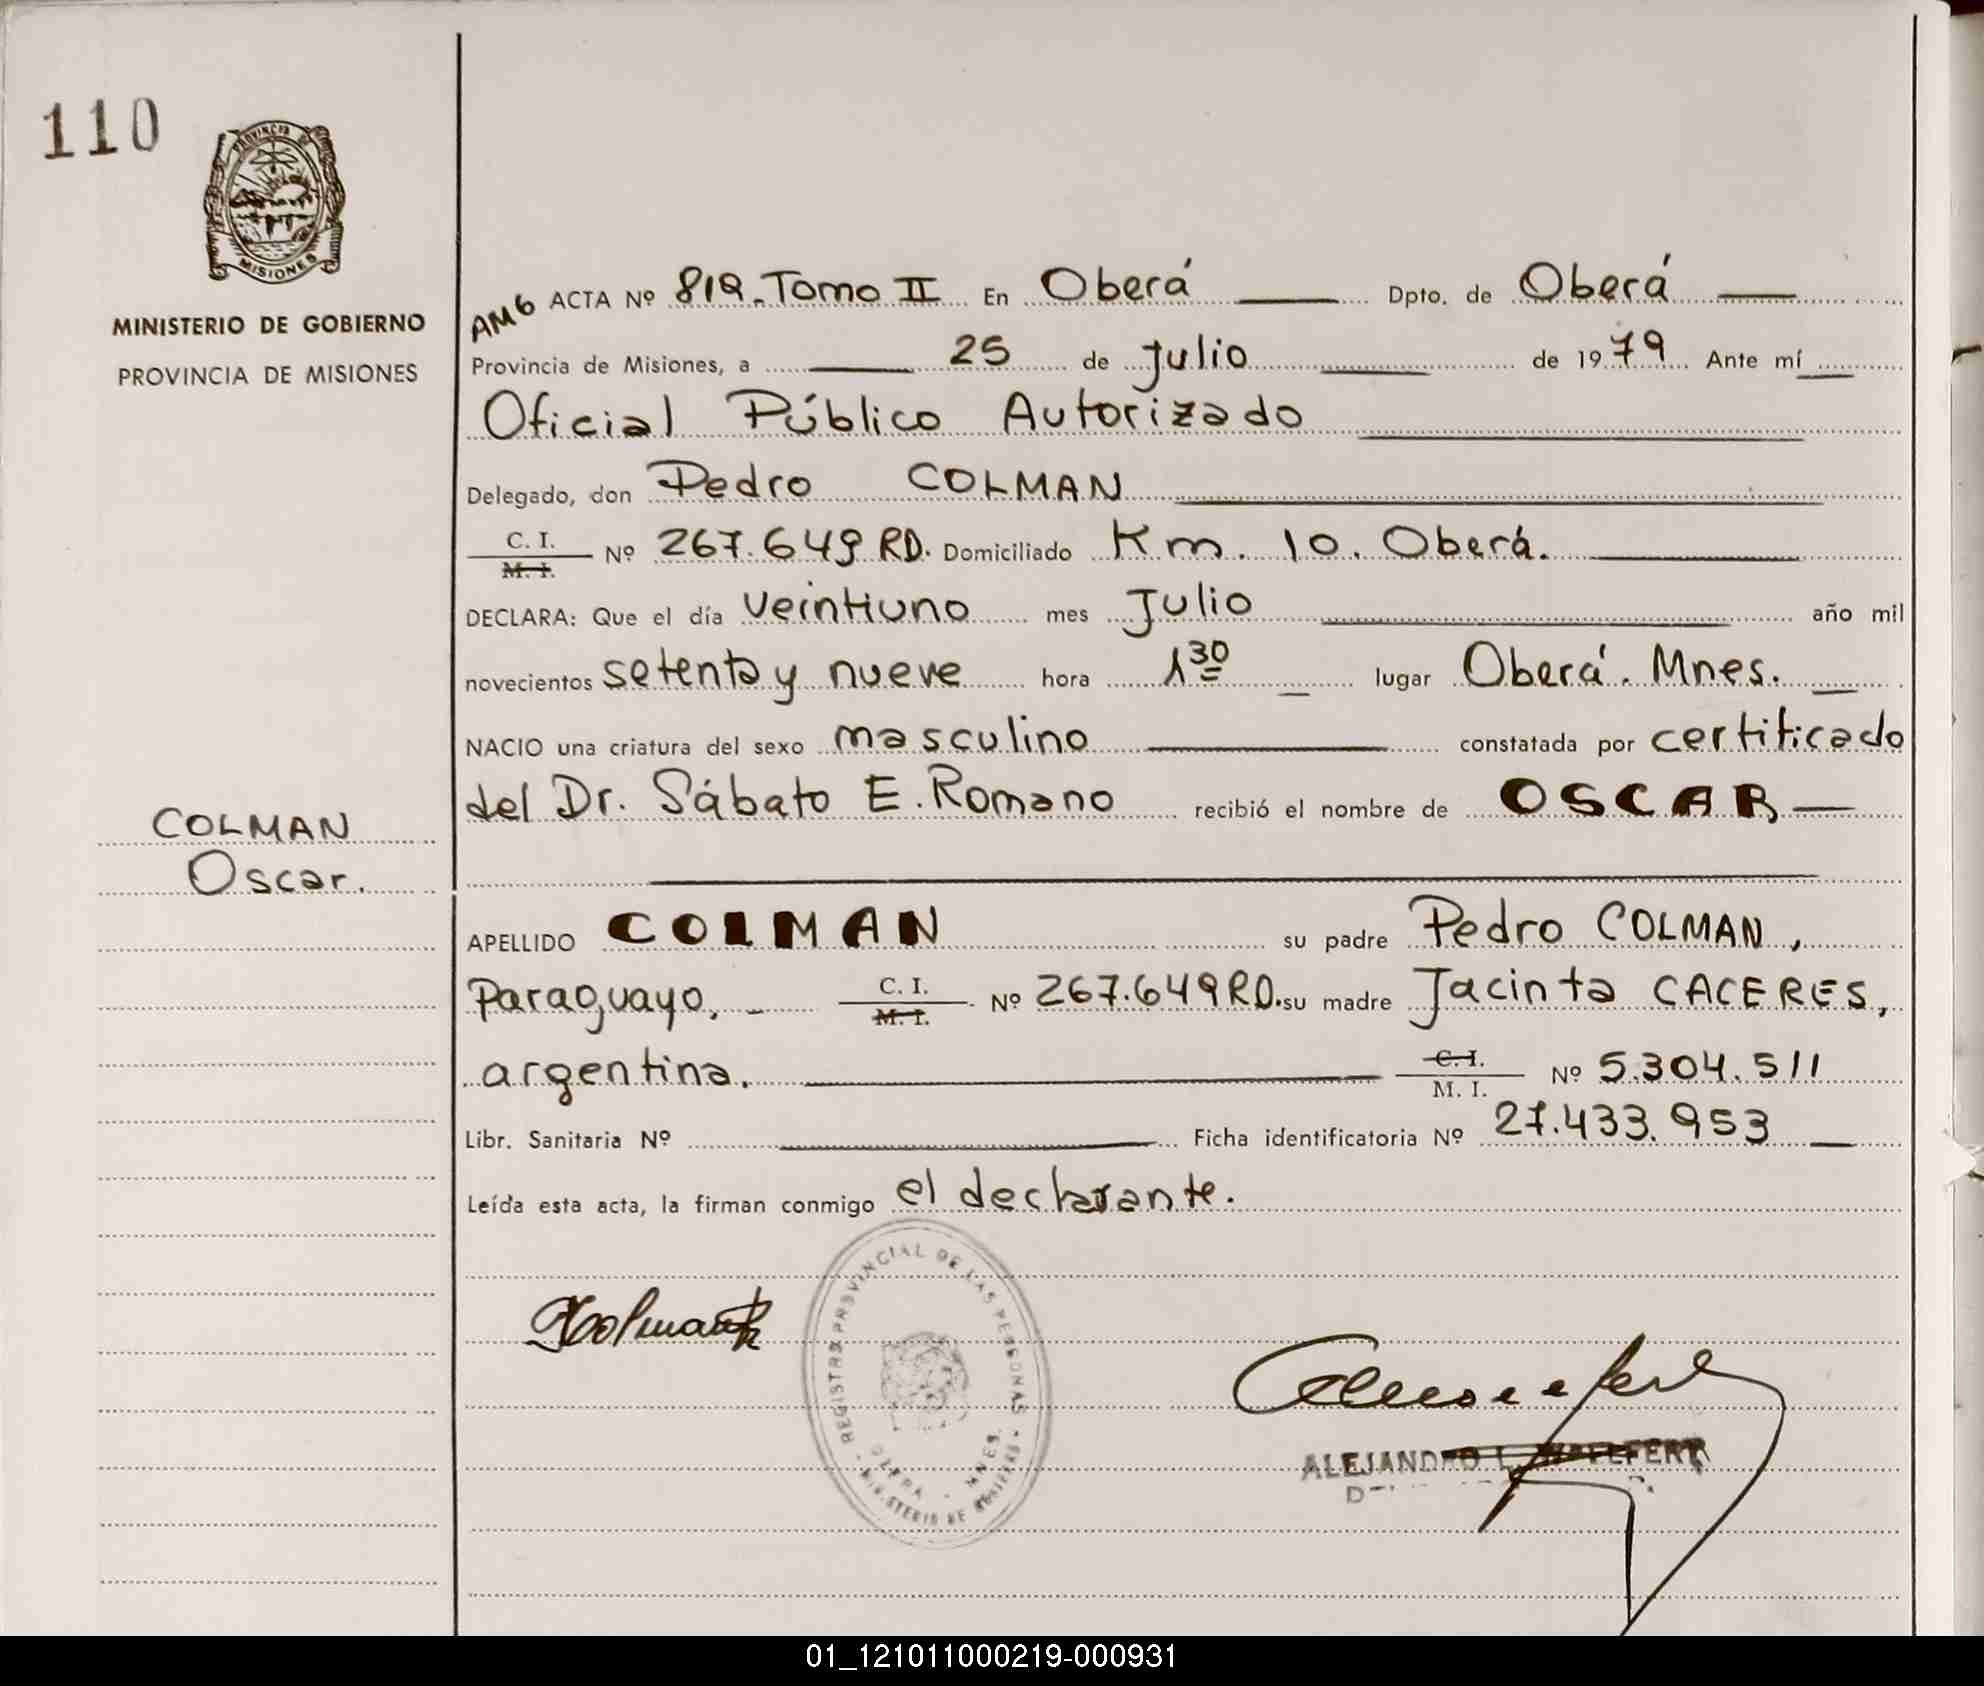 110
PROVINCIA DE
MISIONES
MINISTERIO DE GOBIERNO
PROVINCIA DE MISIONES
AM6 ACTA Nº 819. Tomo II En Oberá Dpto. de Oberá
Provincia de Misiones, a 25 de Julio de 1979 Ante mí
Oficial Público Autorizado
Delegado, don Pedro COLMAN
C. I.
M. I. Nº 267.649 RD. Domiciliado Km. 10. Oberá.
DECLARA: Que el día veintiuno mes Julio año mil
novecientos setenta y nueve hora 1 30 lugar Oberá. Mnes.
NACIO una criatura del sexo masculino constatada por certificado
del Dr. Sábato E. Romano recibió el nombre de OSCAR
COLMAN
Oscar.
APELLIDO COLMAN su padre Pedro COLMAN,
Paraguayo. C. I.
M. I. Nº 267.649 RD. su madre Jacinta CACERES,
argentina. C. I.
M. I. Nº 5.304.511
Libr. Sanitaria Nº Ficha identificatoria Nº 27.433.953
Leída esta acta, la firman conmigo el declarante.
REGISTRO PROVINCIAL DE LAS PERSONAS
OBERA - MNES.
MINISTERIO DE GOBIERNO
ALEJANDRO L.
01_121011000219-000931